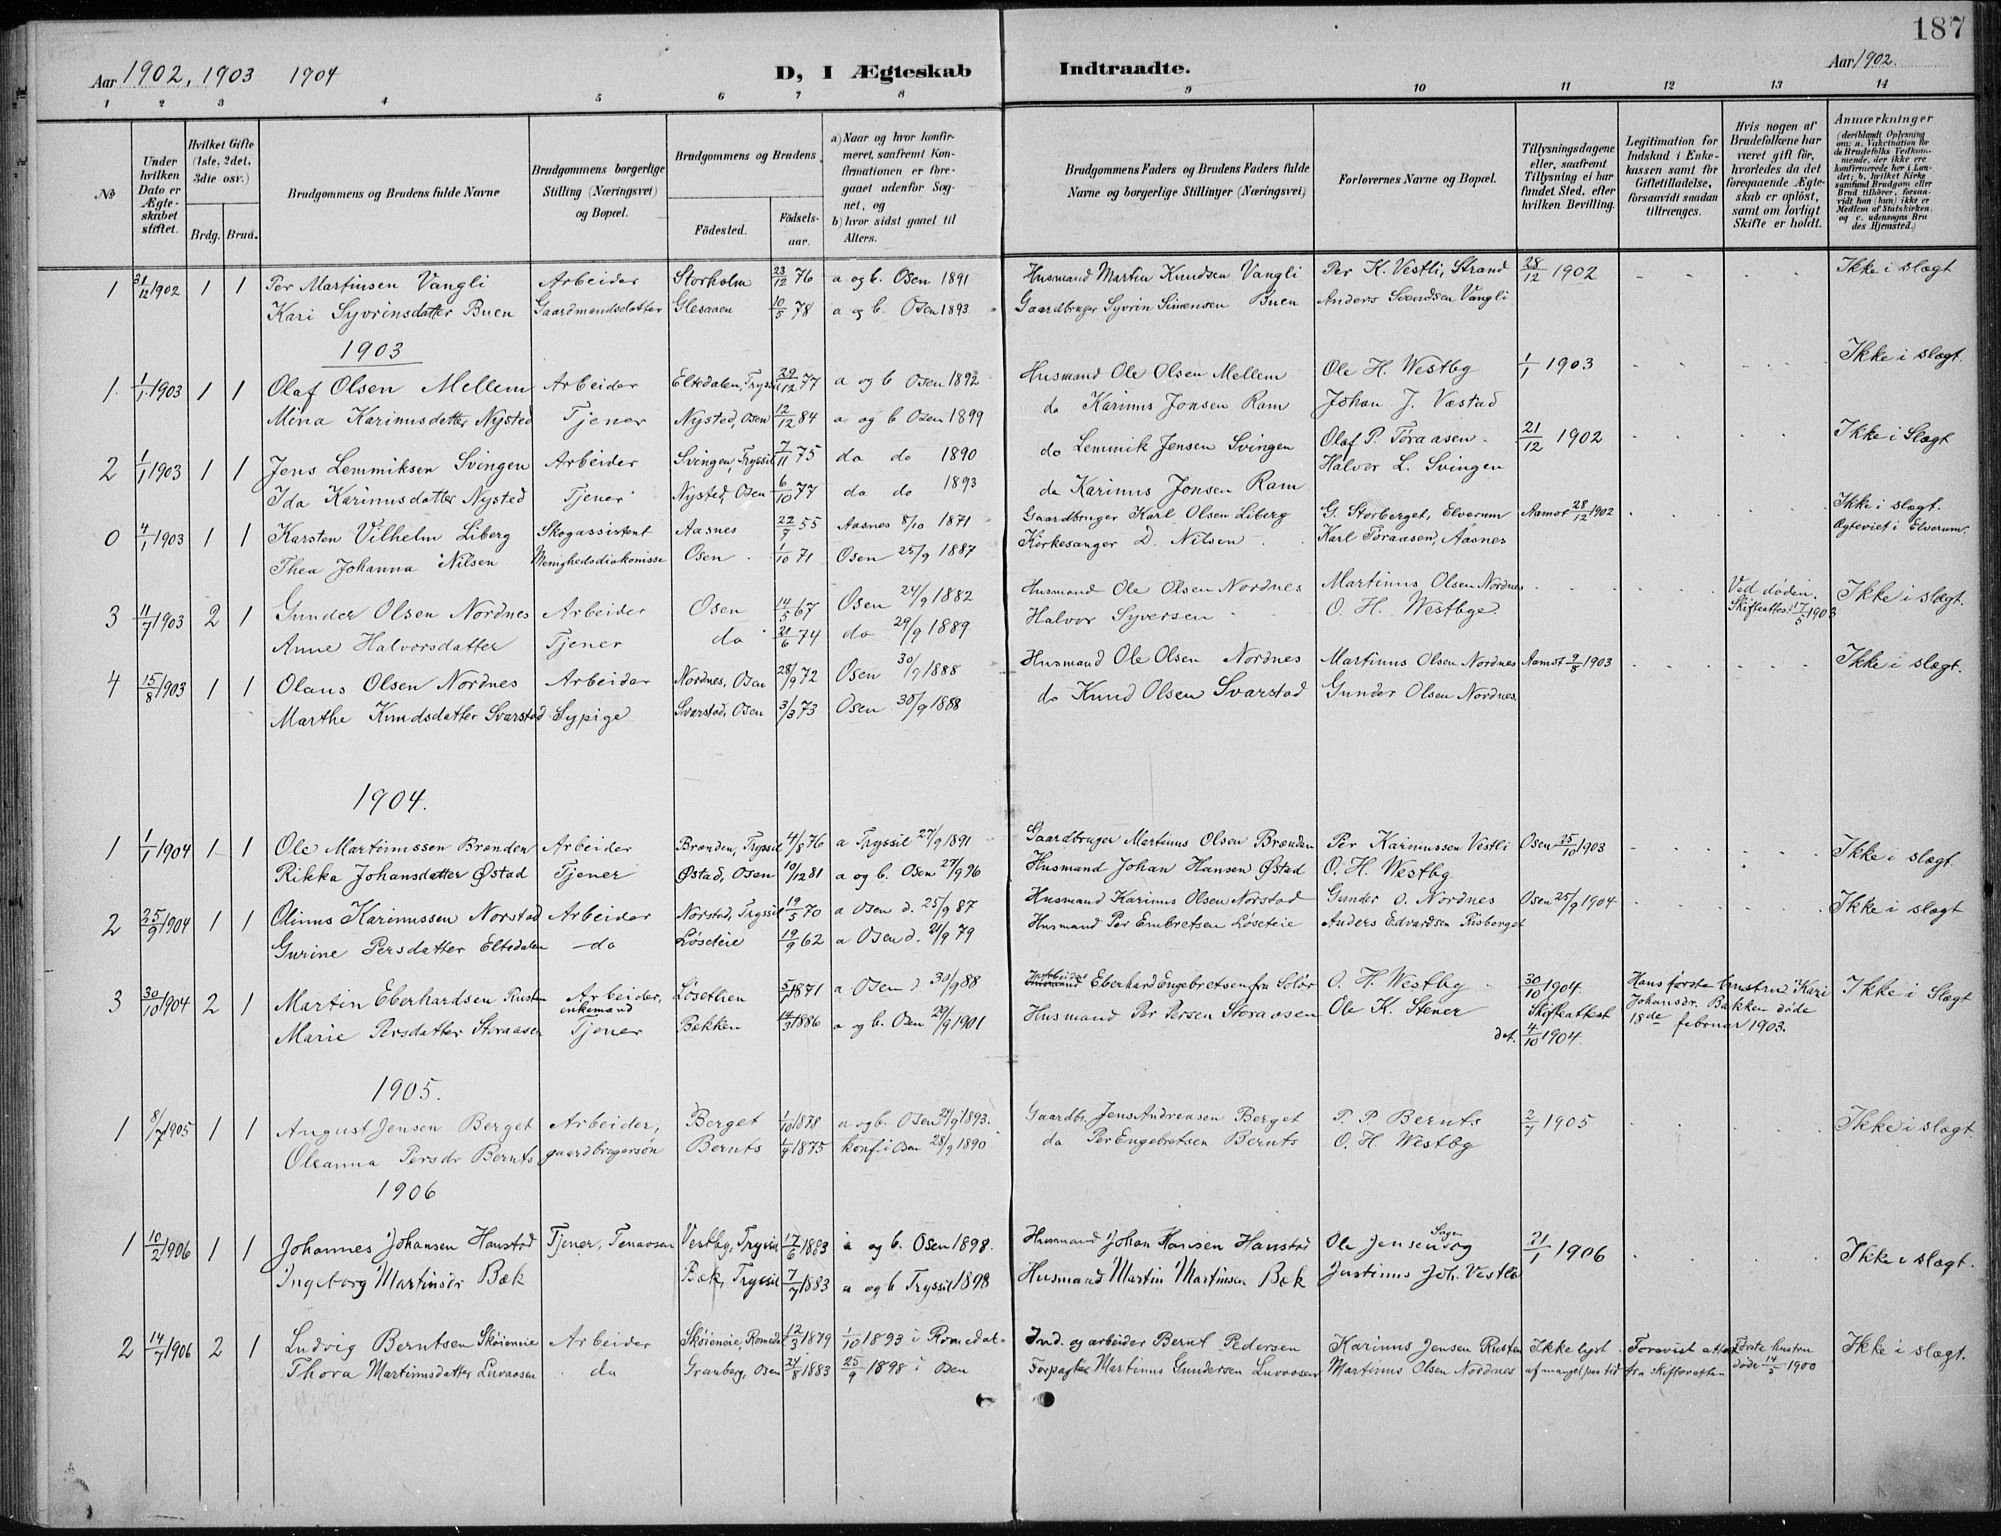 187
Aar 1902, 1903 1904
D, I Ægteskab Indtraadte.
Aar 1902.
1 2 3 4 5 6 7 8 9 10 11 12 13 14
№
Under hvilken Dato er Ægteskabet stiftet.
Hvilket Gifte (1ste, 2det, 3die osv.)
Brdg. Brud.
Brudgommens og Brudens fulde Navne
Brudgommens borgerlige Stilling (Næringsvei) og Bopæl.
Brudgommens og Brudens
Födested. Födselsaar.
a) Naar og hvor konfirmeret, saafremt Konfirmationen er foregaaet udenfor Sognet, og
b) hvor sidst gaaet til Alters.
Brudgommens Faders og Brudens Faders fulde Navne og borgerlige Stillinger (Næringsvei)
Forlovernes Navne og Bopæl.
Tillysningsdagene eller, saafremt Tillysning ei har fundet Sted, efter hvilken Bevilling.
Legitimation for Indskud i Enkekassen samt for Giftetilladelse, forsaavidt saadan tiltrænges.
Hvis nogen af Brudefolkene har været gift før, hvorledes da det foregaaende Ægteskab er opløst, samt om lovligt Skifte er holdt.
Anmærkninger (deriblandt Oplysning om: a. Vakcination for de Brudefolks Vedkommende, der ikke ere konfirmerede her i Landet; b. hvilket Kirkesamfund Brudgom eller Brud tilhører, forsaavidt han (hun) ikke er Medlem af Statskirken, og c. udensogns Brudes Hjemsted.)
1 31/12 1902 1 1 Per Martinsen Vangli Arbeider Storholm 23/12 76 a og b. Osen 1891 Husmand Martin Knudsen Vangli Per K. Vestli, Strand 28/12 1902 Ikke i slægt
Kari Syvrinsdatter Buen Gaardmandsdatter Glesaaen 10/5 78 a og b. Osen 1893 Gaardbruger Syvrin Simensen Buen Anders Svendsen Vangli
1903
1. 1/1 1903 1 1 Olaf Olsen Mellem Arbeider Eltedalen, Tryssil 29/12 77 a og b Osen 1892 Husmand Ole Olsen Mellem Ole H. Westby 1/1 1903 Ikke i slægt.
Mina Karinusdatter Nysted Tjener Nysted, Osen 12/12 84 a og b Osen 1899 do Karinus Jonsen Ram Johan J. Væstad
2 1/1 1903 1 1 Jens Lemmiksen Svingen Arbeider Svingen, Tryssil 7/11 75 do do 1890 do Lemmik Jensen Svingen Olaf P. Toraasen 21/12 1902 Ikke i Slægt
Ida Karinusdatter Nysted Tjener Nysted, Osen 6/10 77 do do 1893 do Karinus Jonsen Ram Halvor L. Svingen
0 4/1 1903 1 1 Karsten Vilhelm Liberg Skogassistent Aasnes 22/9 55 Aasnes 8/10 1871 Gaardbruger Karl Olsen Liberg G. Storberget, Elverum Aamot 28/12 1902 Ikke i slægt. Ægteviet i Elverum.
Thea Johanna Nilsen Menighedsdiakonisse Osen 1/10 71 Osen 25/9 1887 Kirkesanger D. Nilsen Karl Toraasen, Aasnes
3 11/7 1903 2 1 Gunder Olsen Nordnes Arbeider Osen 14/5 67 Osen 24/9 1882 Husmand Ole Olsen Nordnes Martinus Olsen Nordnes Ved døden. Skifteattest 17/5 1903 Ikke i slægt.
Anne Halvorsdatter Tjener do 21/6 74 do 29/9 1889 Halvor Syversen O. H. Westbye
4 15/8 1903 1 1 Olaus Olsen Nordnes Arbeider Nordnes, Osen 28/9 72 Osen 30/9 1888 Husmand Ole Olsen Nordnes Martinus Olsen Nordnes Aamot 9/8 1903 Ikke i slægt.
Marthe Knudsdatter Svarstad Sypige Svarstad, Osen 3/3 73 Osen 30/9 1888 do Knud Olsen Svarstad Gunder Olsen Nordnes.
1904.
1 1/1 1904 1 1 Ole Martinussen Brænden Arbeider Brænden, Tryssil 4/8 76 a Tryssil 27/9 1891 Gaardbruger Martinus Olsen Brænden Per Karinussen Vestli Osen 25/10 1903 Ikke i slægt.
Rikka Johansdatter Østad Tjener Østad, Osen 10/12 81 a og b. Osen 27/9 96 Husmand Johan Hansen Østad O. H. Westby
2 25/9 1904 1 1 Olinus Karinussen Norstad Arbeider Norstad, Tryssil 19/5 70 a Osen d. 25/9 87 Husmand Karinus Olsen Norstad Gunder O. Nordnes Osen 25/9 1904 Ikke i slægt
Gurine Persdatter Eltedalen do Løseteie 19/9 62 a Osen d. 21/9 79 Husmand Per Embretsen Løseteie Anders Edvardsen Risberget
3 30/10 1904 2 1 Martin Eberhardsen Rusten Arbeider, enkemand Løsethen 5/7 1871 a Osen d. 30/9 88 Eberhard Engebretsen fra Solør O. H. Westby 30/10 1904. Hans første hustru Kari Johansdr. Bakken døde 18de februar 1903. Ikke i Slægt
Marie Persdatter Storaasen Tjener Bakken 14/3 1886 a og b. Osen 29/9 1901 Husmand Per Persen Storaasen Ole K. Stener Skifteattest dat. 4/10 1904.
1905.
1 8/7 1905 1 1 August Jensen Berget Arbeider, Berget 1/10 1878 a og b. Osen 24/9 1893. Gaardbr. Jens Andreasen Berget P. P. Bernts 2/7 1905 Ikke i slægt.
Oleanna Persdr Bernts gaardbrugersøn Bernts 1/4 1875 konf. i Osen 28/9 1890 do Per Engebretsen Bernts O. H. Westby
1906
1 10/2 1906 1 1 Johannes Johansen Hanstad Tjener, Tenaasen Vestby, Tryssil 17/6 1883 a og b. Osen 1898. Husmand Johan Hansen Hanstad Ole Jensen 21/1 1906 Ikke i slægt.
Ingeborg Martinsdr Bæk Bæk, Tryssil 7/7 1883 a og b Tryssil 1898 Husmand Martin Martinsen Bæk Justinus Joh. Vestb
2 14/7 1906 2 1 Ludvig Berntsen Skøieneie Arbeider Skøieneie, Romedal 12/3 1879 1/10 1893 i Romedal. Ind. og arbeider Bernt Pedersen Karinus Jensen Rusten Ikke lyst Forevist attest Første hustru Ikke i slægt.
Thora Martinusdatter Luvaasen do Granberg, Osen 24/8 1883 25/9 1898 i Osen Forpagter Martinus Gundersen Luvaasen Martinus Olsen Nordnes af mangel paa tid fra skifteretten døde 14/5 1900